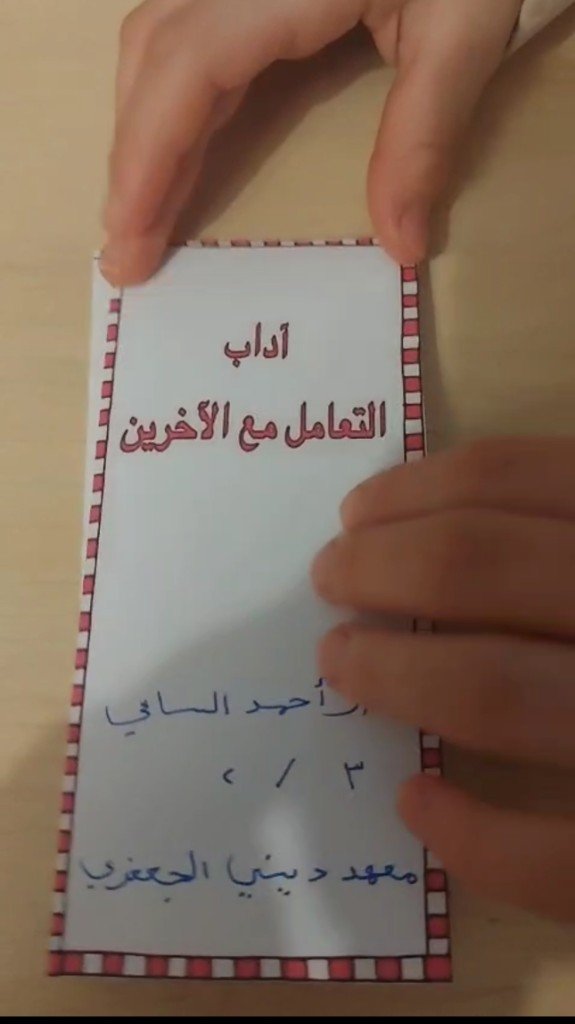 آداب
التعامل مع الآخرين
أحمد السافي
٣ / ٢
معهد ديني الجعفري